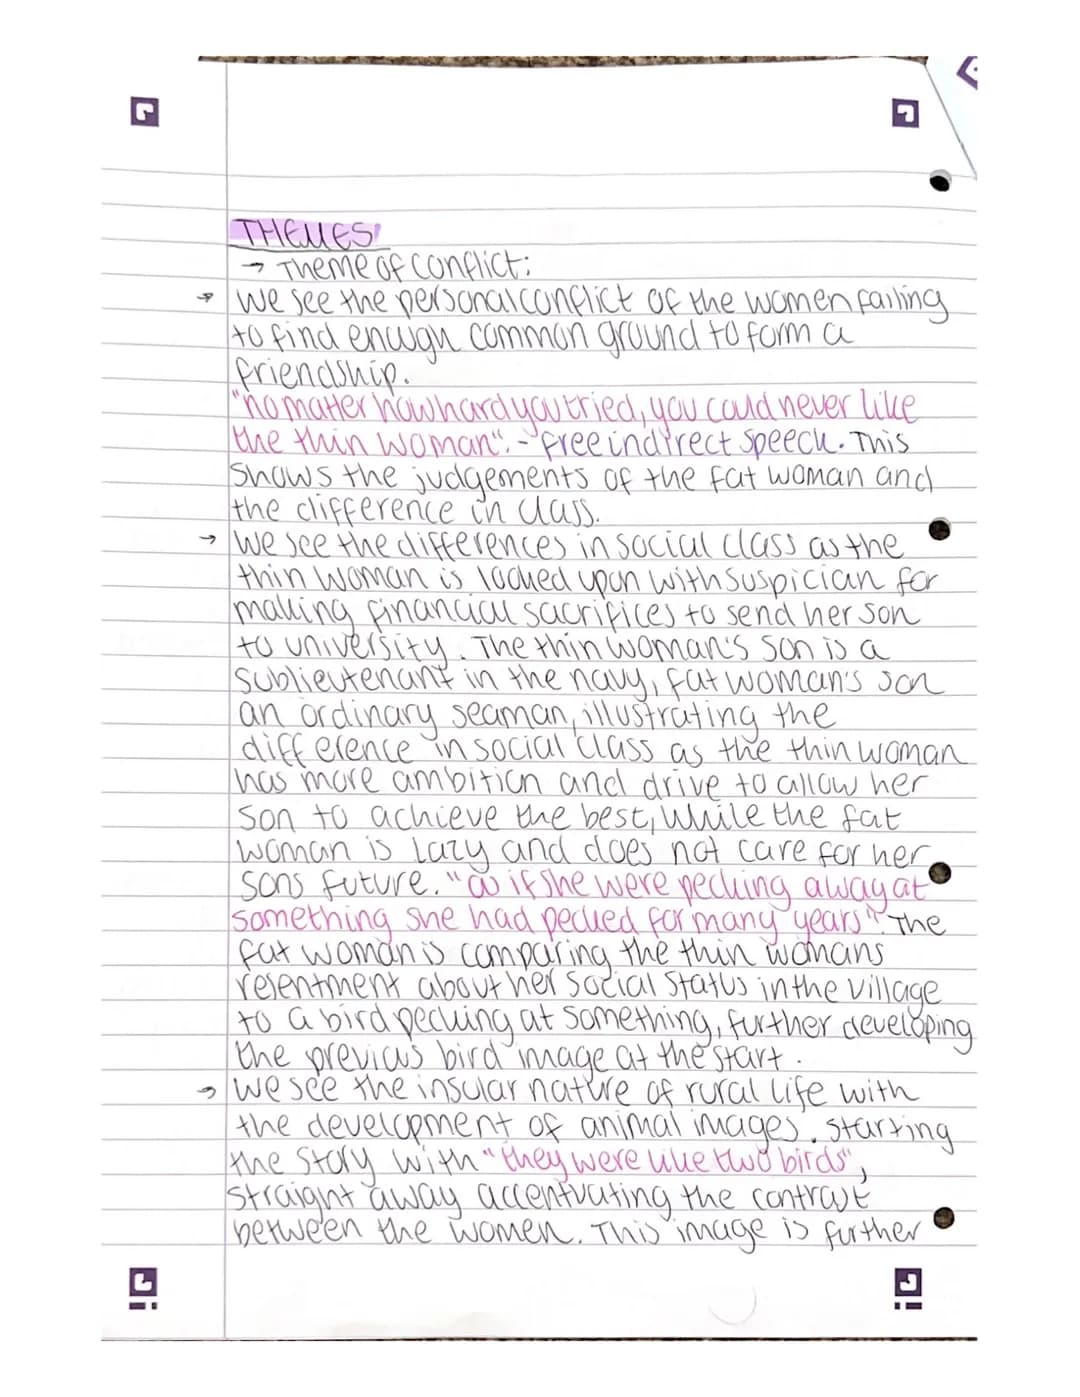 THEMES:
→ Theme of conflict:
→ we see the personal conflict of the women failing
to find enough common ground to form a
friendship.
"no matter how hard you tried, you could never like
the thin woman". - free indirect speech. This
shows the judgements of the fat woman and
the difference in class.
→ we see the differences in social class as the
thin woman is looked upon with suspician for
making financial sacrifices to send her son
to university. The thin woman's son is a
sublieutenant in the navy, fat woman's son
an ordinary seaman, illustrating the
difference in social class as the thin woman
has more ambition and drive to allow her
son to achieve the best, while the fat
woman is lazy and does not care for her
sons future. "as if she were pecking away at
something she had pecked for many years". The
fat woman is comparing the thin womans
resentment about her social status in the village
to a bird pecking at something, further developing
the previous bird image at the start.
→ we see the insular nature of rural life with
the development of animal images. starting
the story with "they were like two birds",
straight away accentuating the contrast
between the women. This image is further